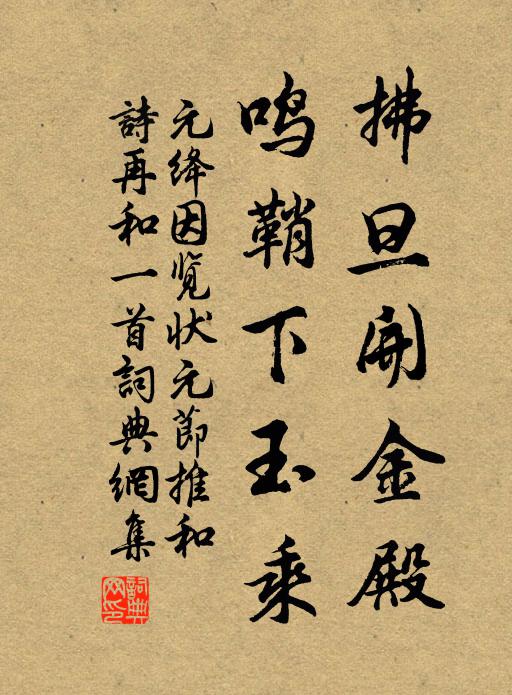 拂旦開金殿
鸣鞘下玉乘
元绛因览状元節推和
詩再和一首詞典網集
詞典网印